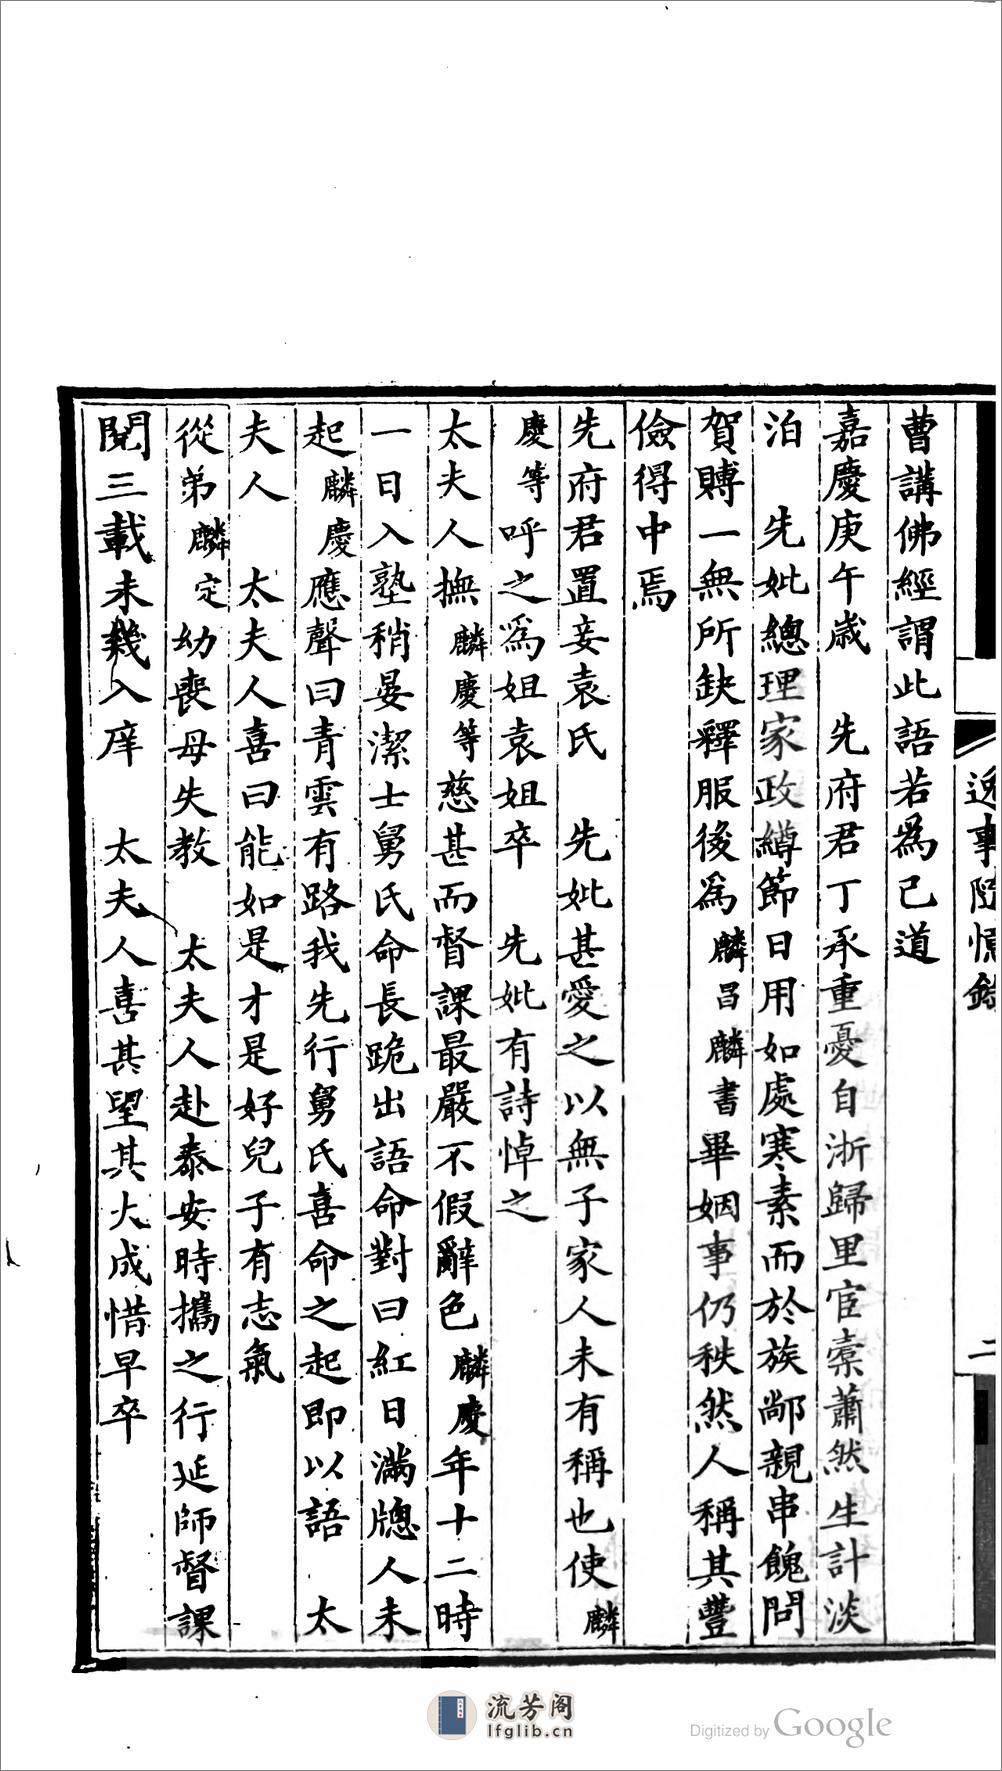 近事隨憶錄
二
曹講佛經謂此語若爲己道
嘉慶庚午歲　先府君丁承重憂自浙歸里宦橐蕭然生計淡
泊　先妣總理家政縛節日用如處寒素而於族鄰親串餽問
賀賻一無所缺釋服後爲麟昌麟書畢姻事仍秩然人稱其豐
儉得中焉
先府君置妾袁氏　先妣甚愛之以無子家人未有稱也使麟
慶等呼之爲姐袁姐卒　先妣有詩悼之
太夫人撫麟慶等慈甚而督課最嚴不假辭色麟慶年十二時
一日入塾稍晏潔士舅氏命長跪出語命對曰紅日滿牕人未
起麟慶應聲曰青雲有路我先行舅氏喜命之起即以語　太
夫人　太夫人喜曰能如是才是好兒子有志氣
從弟麟定幼喪母失教　太夫人赴泰安時攜之行延師督課
閱三載未幾入庠　太夫人喜甚望其大成惜早卒
流芳阁
lfglib.cn
Digitized by Google